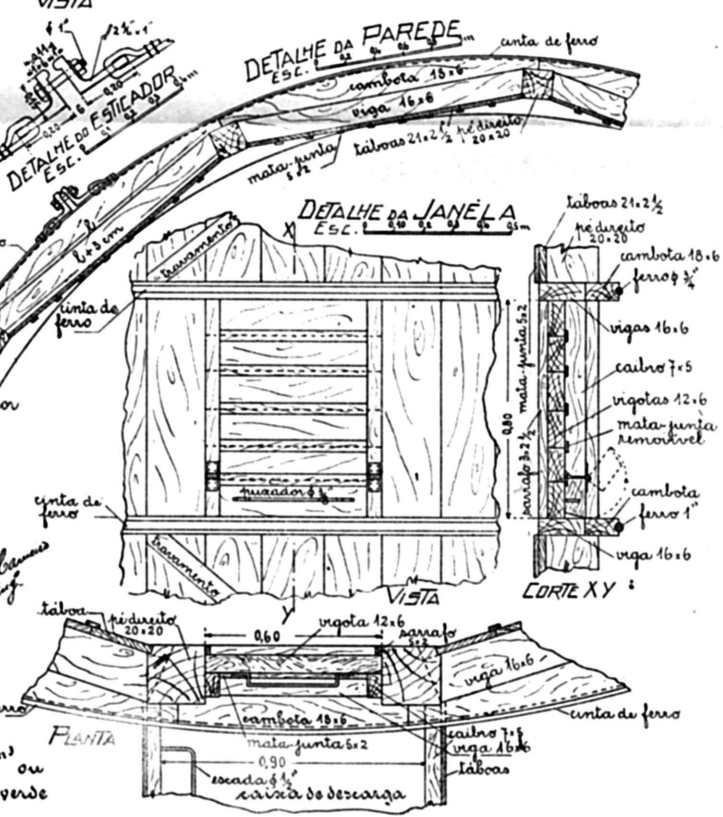 VISTA
ϕ 1"
2½"×1"
0,20
6
0,20
DETALHE DO ESTICADOR
ESC.
DETALHE DA PAREDE
ESC.
cinta de ferro
cambota 18×6
viga 16×6
mata-junta
5×2
tàboas 21×2½
pé direito
20×20
l
l+3cm
DETALHE DA JANELA
ESC.
X
travamento
cinta de
ferro
puxador ϕ ½"
cinta de
ferro
travamento
Y
VISTA
mata-junta 5×2
0,80
sarrafo 3×2½
tàboas 21×2½
pé direito
20×20
cambota 18×6
ferro ϕ ¾"
vigas 16×6
caibro 7×5
vigotas 12×6
mata-junta
removivel
cambota
ferro 1"
viga 16×6
CORTE XY
tàboa
pé direito
20×20
0,60
vigota 12×6
sarrafo
5×2
viga 16×6
cambota 18×6
cinta de ferro
PLANTA
mata-junta 5×2
caibro 7×5
viga 16×6
0,90
tàboas
escada ϕ ½"
caixa de descarga
ou
verde